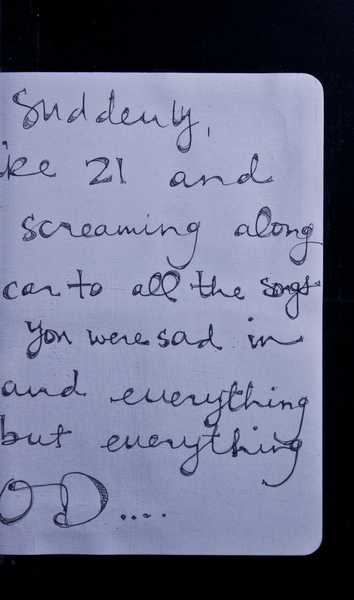 Suddenly,
ke 21 and
screaming along
car to all the songs
you were sad in
and everything
but everything
OD....